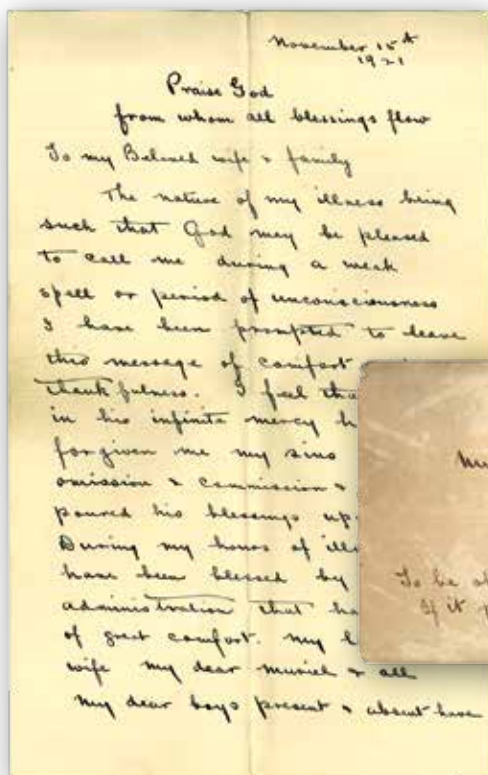 November 15th
1921
Praise God
from whom all blessings flow
To my Beloved wife & family
The nature of my illness being
such that God may be pleased
to call me during a weak
spell or period of unconsciousness
I have been prompted to leave
this message of comfort
thankfulness. I feel tha
in his infinite mercy h
forgiven me my sins
omission & commission &
poured his blessings up
During my hours of ill
have been blessed by
administration that ha
of great comfort. My
wife my dear Muriel & all
my dear boys present & absent have
To be
If it